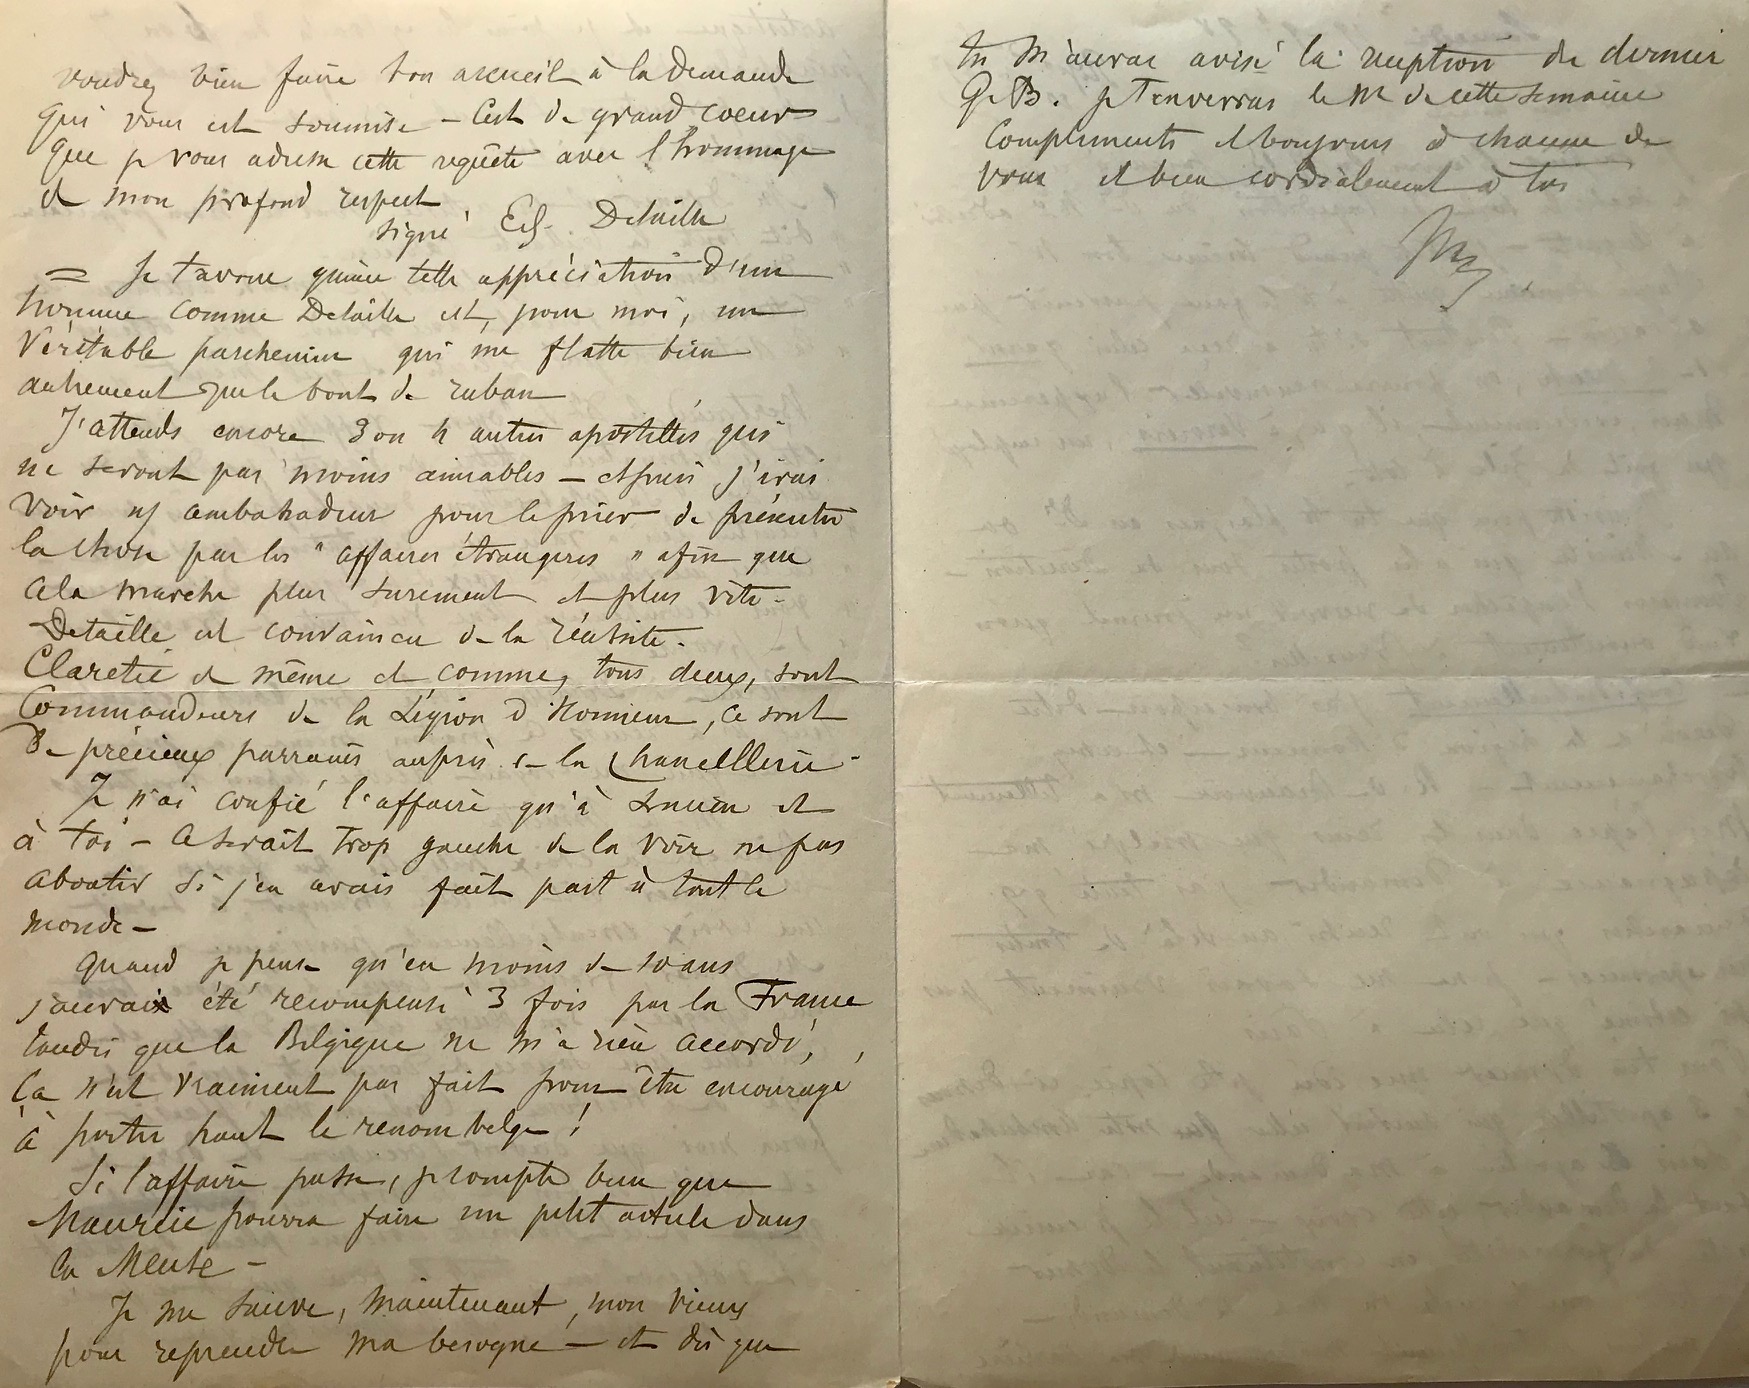 voudrez bien faire bon accueil à la demande
qui vous est soumise – C'est de grand coeur
que je vous adresse cette requête avec l'hommage
de mon profond respect
signé Ed. Detaille
= Je t'avoue qu'une telle appréciation d'un
homme comme Detaille est, pour moi, un
véritable parchemin qui me flatte bien
autrement que le bout de ruban
J'attends encore 3 ou 4 autres apostilles qui
ne seront pas moins aimables – et puis j'irai
voir n/ ambassadeur pour le prier de présenter
la chose par les "affaires étrangères" afin que
cela marche plus surement et plus vite –
Detaille est convaincu de la réussite –
Claretie de même et comme, tous deux, sont
Commandeurs de la Légion d'Honneur, ce sont
de précieux parrains auprès de la Chancelllerie –
Je n'ai confié l'affaire qu'à et
à toi – Ce serait trop gauche de la voir ne pas
aboutir si j'en avais fait part à tout le
monde –
Quand je pense qu'en moins de 10 ans
j'aurai été recompensé 3 fois par la France
tandis que la Belgique ne m'a rien accordé,
ça n'est vraiment pas fait pour être encouragé
à porter haut le renom belge !
Si l'affaire passe, je compte bien que
Maurice pourra faire un petit article dans
la Meuse –
Je me sauve, maintenant, mon vieux
pour reprendre ma besogne – et dès que
tu m'auras avisé la réception du dernier
G. B. je t'enverrai le M de cette semaine
Compliments et bonjours à chacun de
vous et bien cordialement à toi